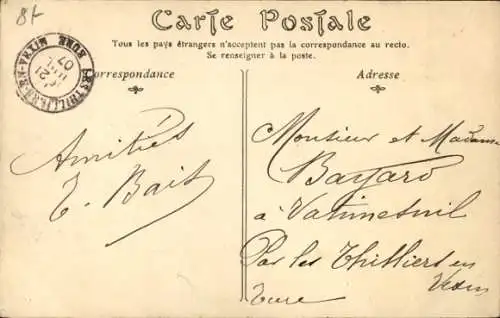 8f
Carte Postale
Tous les pays étrangers n'acceptent pas la correspondance au recto.
Se renseigner à la poste.
Correspondance
Adresse
LES THILLIERS-EN-VEXIN EURE
21
07
Amitiés
Monsieur et Madame
Bayard
à Vatimesnil
Par les Thilliers en
Vexin
Eure